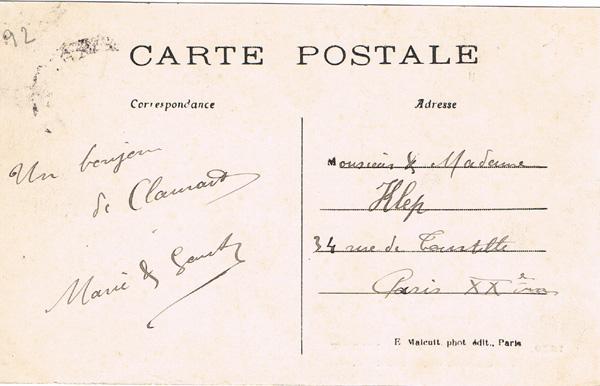 92
CARTE POSTALE
Correspondance
Adresse
Un bonjour
de Clamart
Marie &
Monsieur & Madame
Klep
34 rue de Tourtille
Paris XXe
E Malcuit, phot édit., Paris